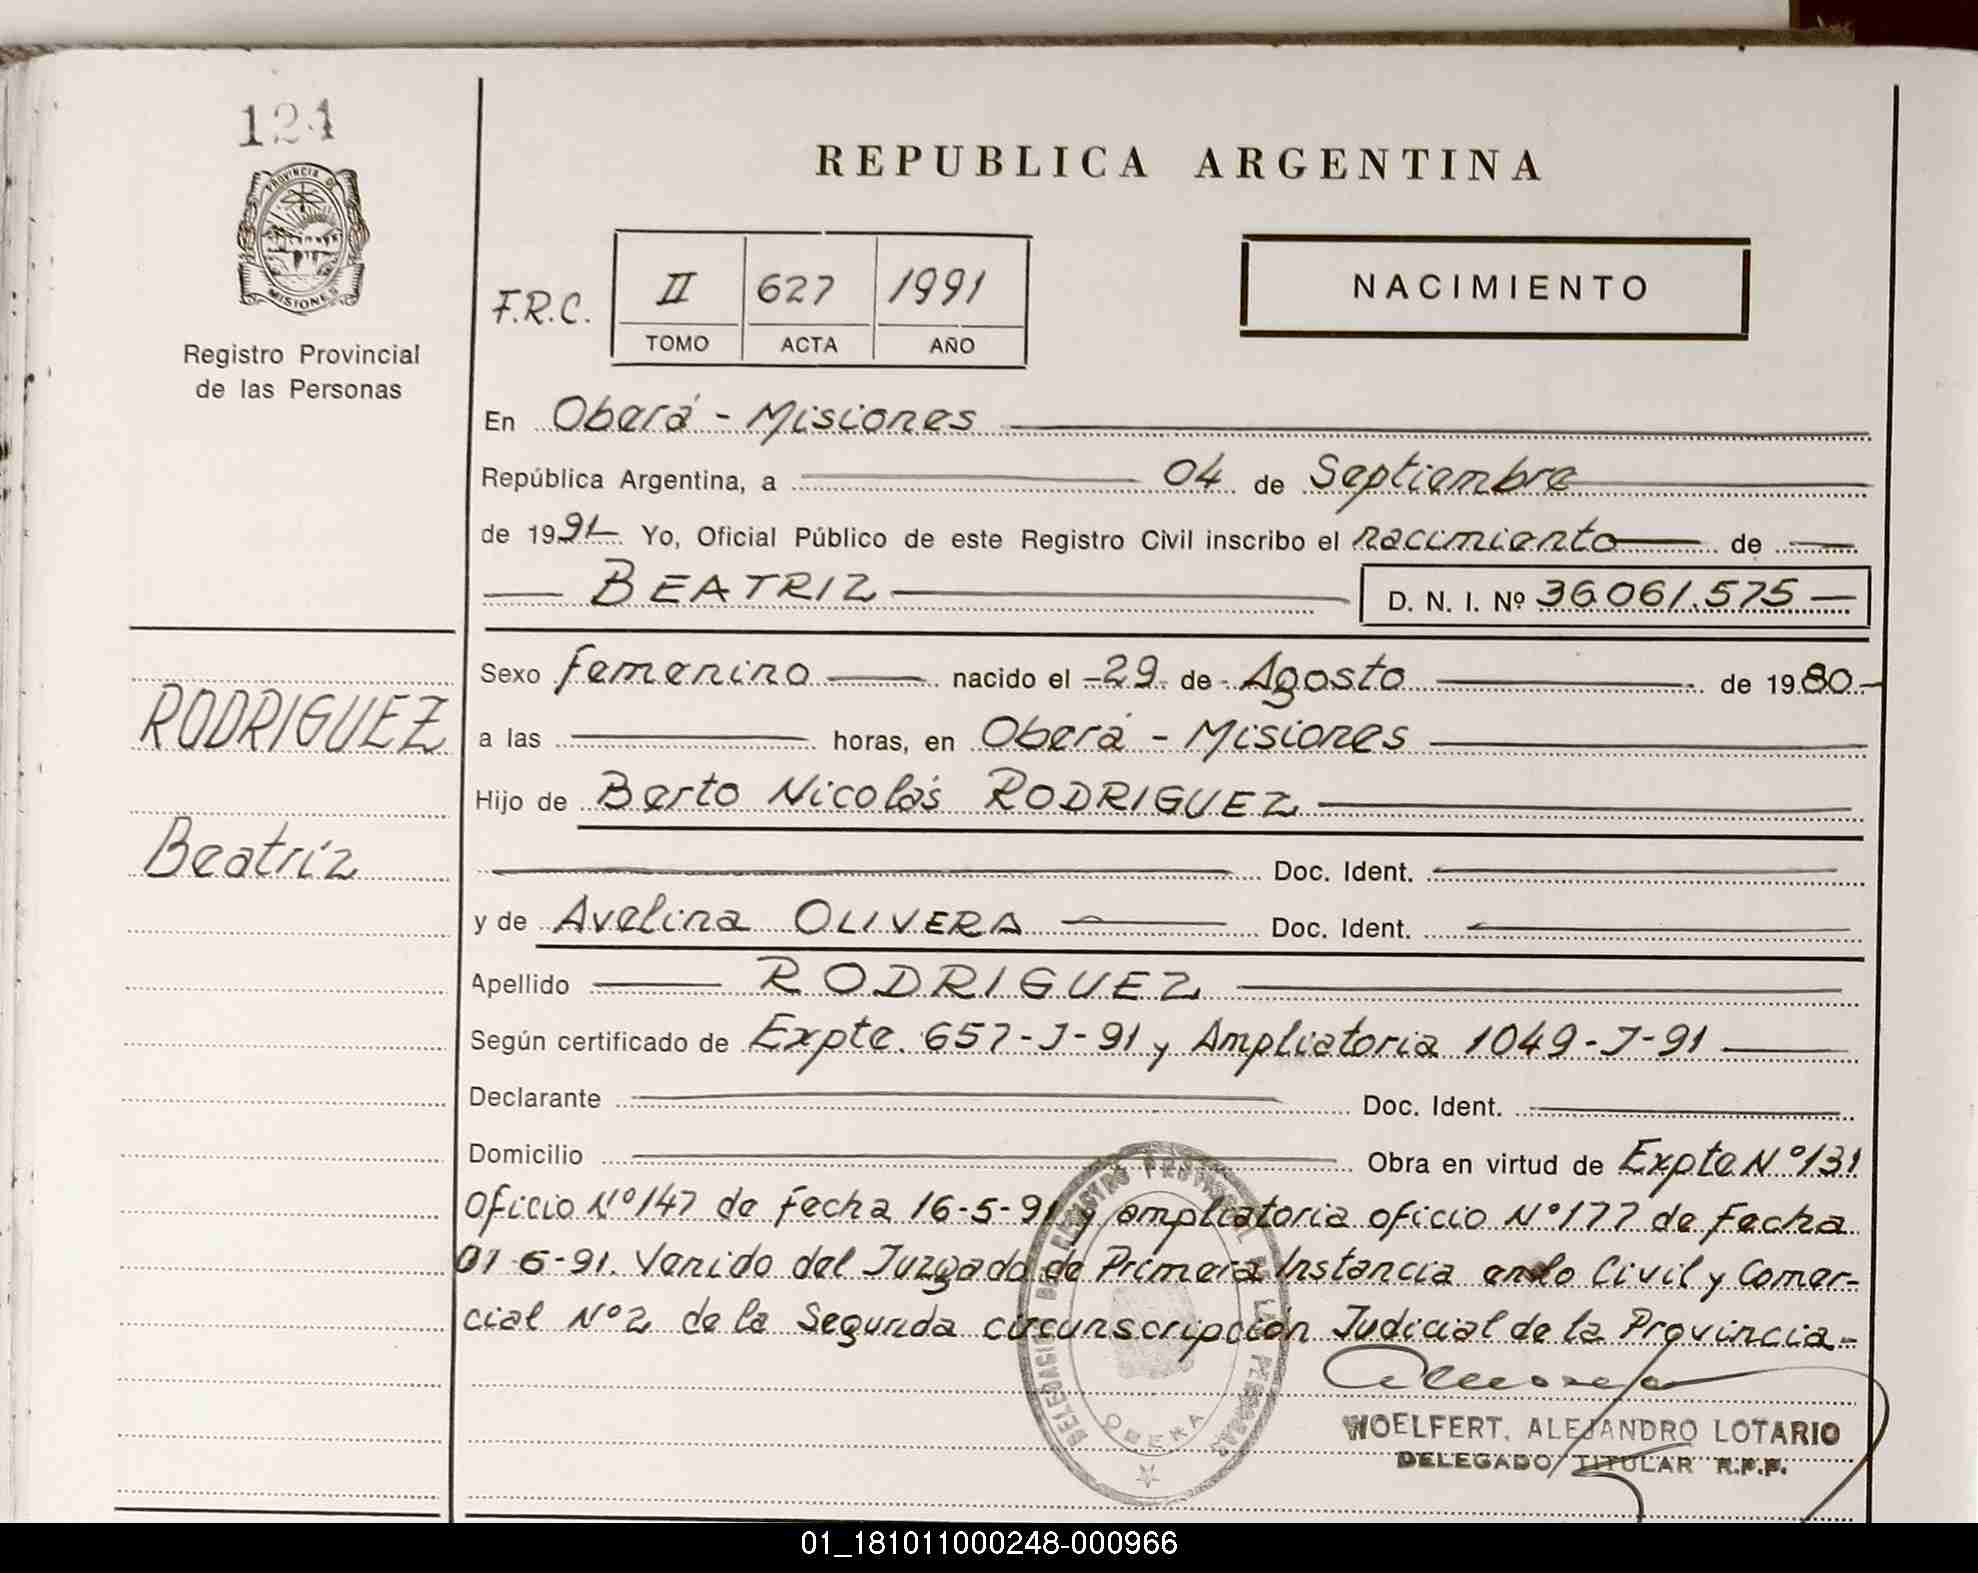 124
PROVINCIA DE
MISIONES
Registro Provincial
de las Personas
REPUBLICA ARGENTINA
F.R.C.
II 627 1991
TOMO ACTA AÑO
NACIMIENTO
En Oberá - Misiones
República Argentina, a 04 de Septiembre
de 1991 Yo, Oficial Público de este Registro Civil inscribo el nacimiento de
BEATRIZ D. N. I. Nº 36.061.575
RODRIGUEZ
Beatriz
Sexo femenino nacido el 29 de Agosto de 1980.-
a las horas, en Oberá - Misiones
Hijo de Berto Nicolás RODRIGUEZ
Doc. Ident.
y de Avelina OLIVERA Doc. Ident.
Apellido RODRIGUEZ
Según certificado de Expte. 657-J-91 y Ampliatoria 1049-J-91
Declarante Doc. Ident.
Domicilio Obra en virtud de Expte Nº 131
Oficio Nº 147 de fecha 16-5-91 y ampliatoria oficio Nº 177 de fecha
01-6-91. Venido del Juzgado de Primera Instancia en lo Civil y Comer-
cial Nº 2 de la Segunda circunscripción Judicial de la Provincia-
DELEGACION DEL REGISTRO PROVINCIAL DE LAS PERSONAS
OBERA
WOELFERT, ALEJANDRO LOTARIO
DELEGADO TITULAR R.P.P.
01_181011000248-000966